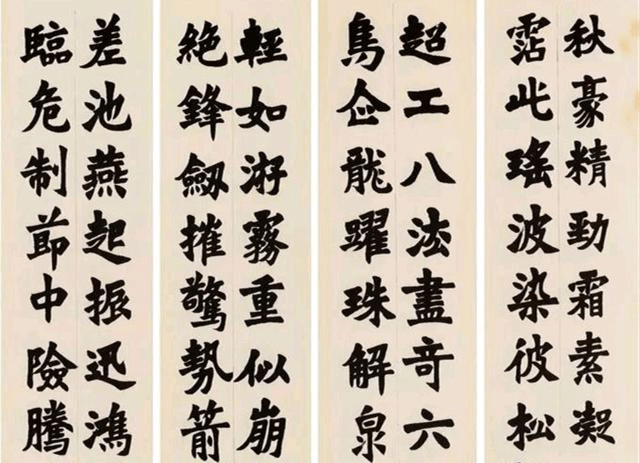 秋豪精勁霜素凝
霑此瑤波染彼松
超工八法盡竒六
鳥企龍躍珠解泉
輕如游霧重似崩
絶鋒劔摧驚勢箭
差池燕起振迅鴻
臨危制節中險騰